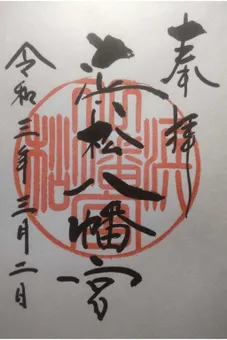 奉拝
浜松八幡宮
令和三年三月二日